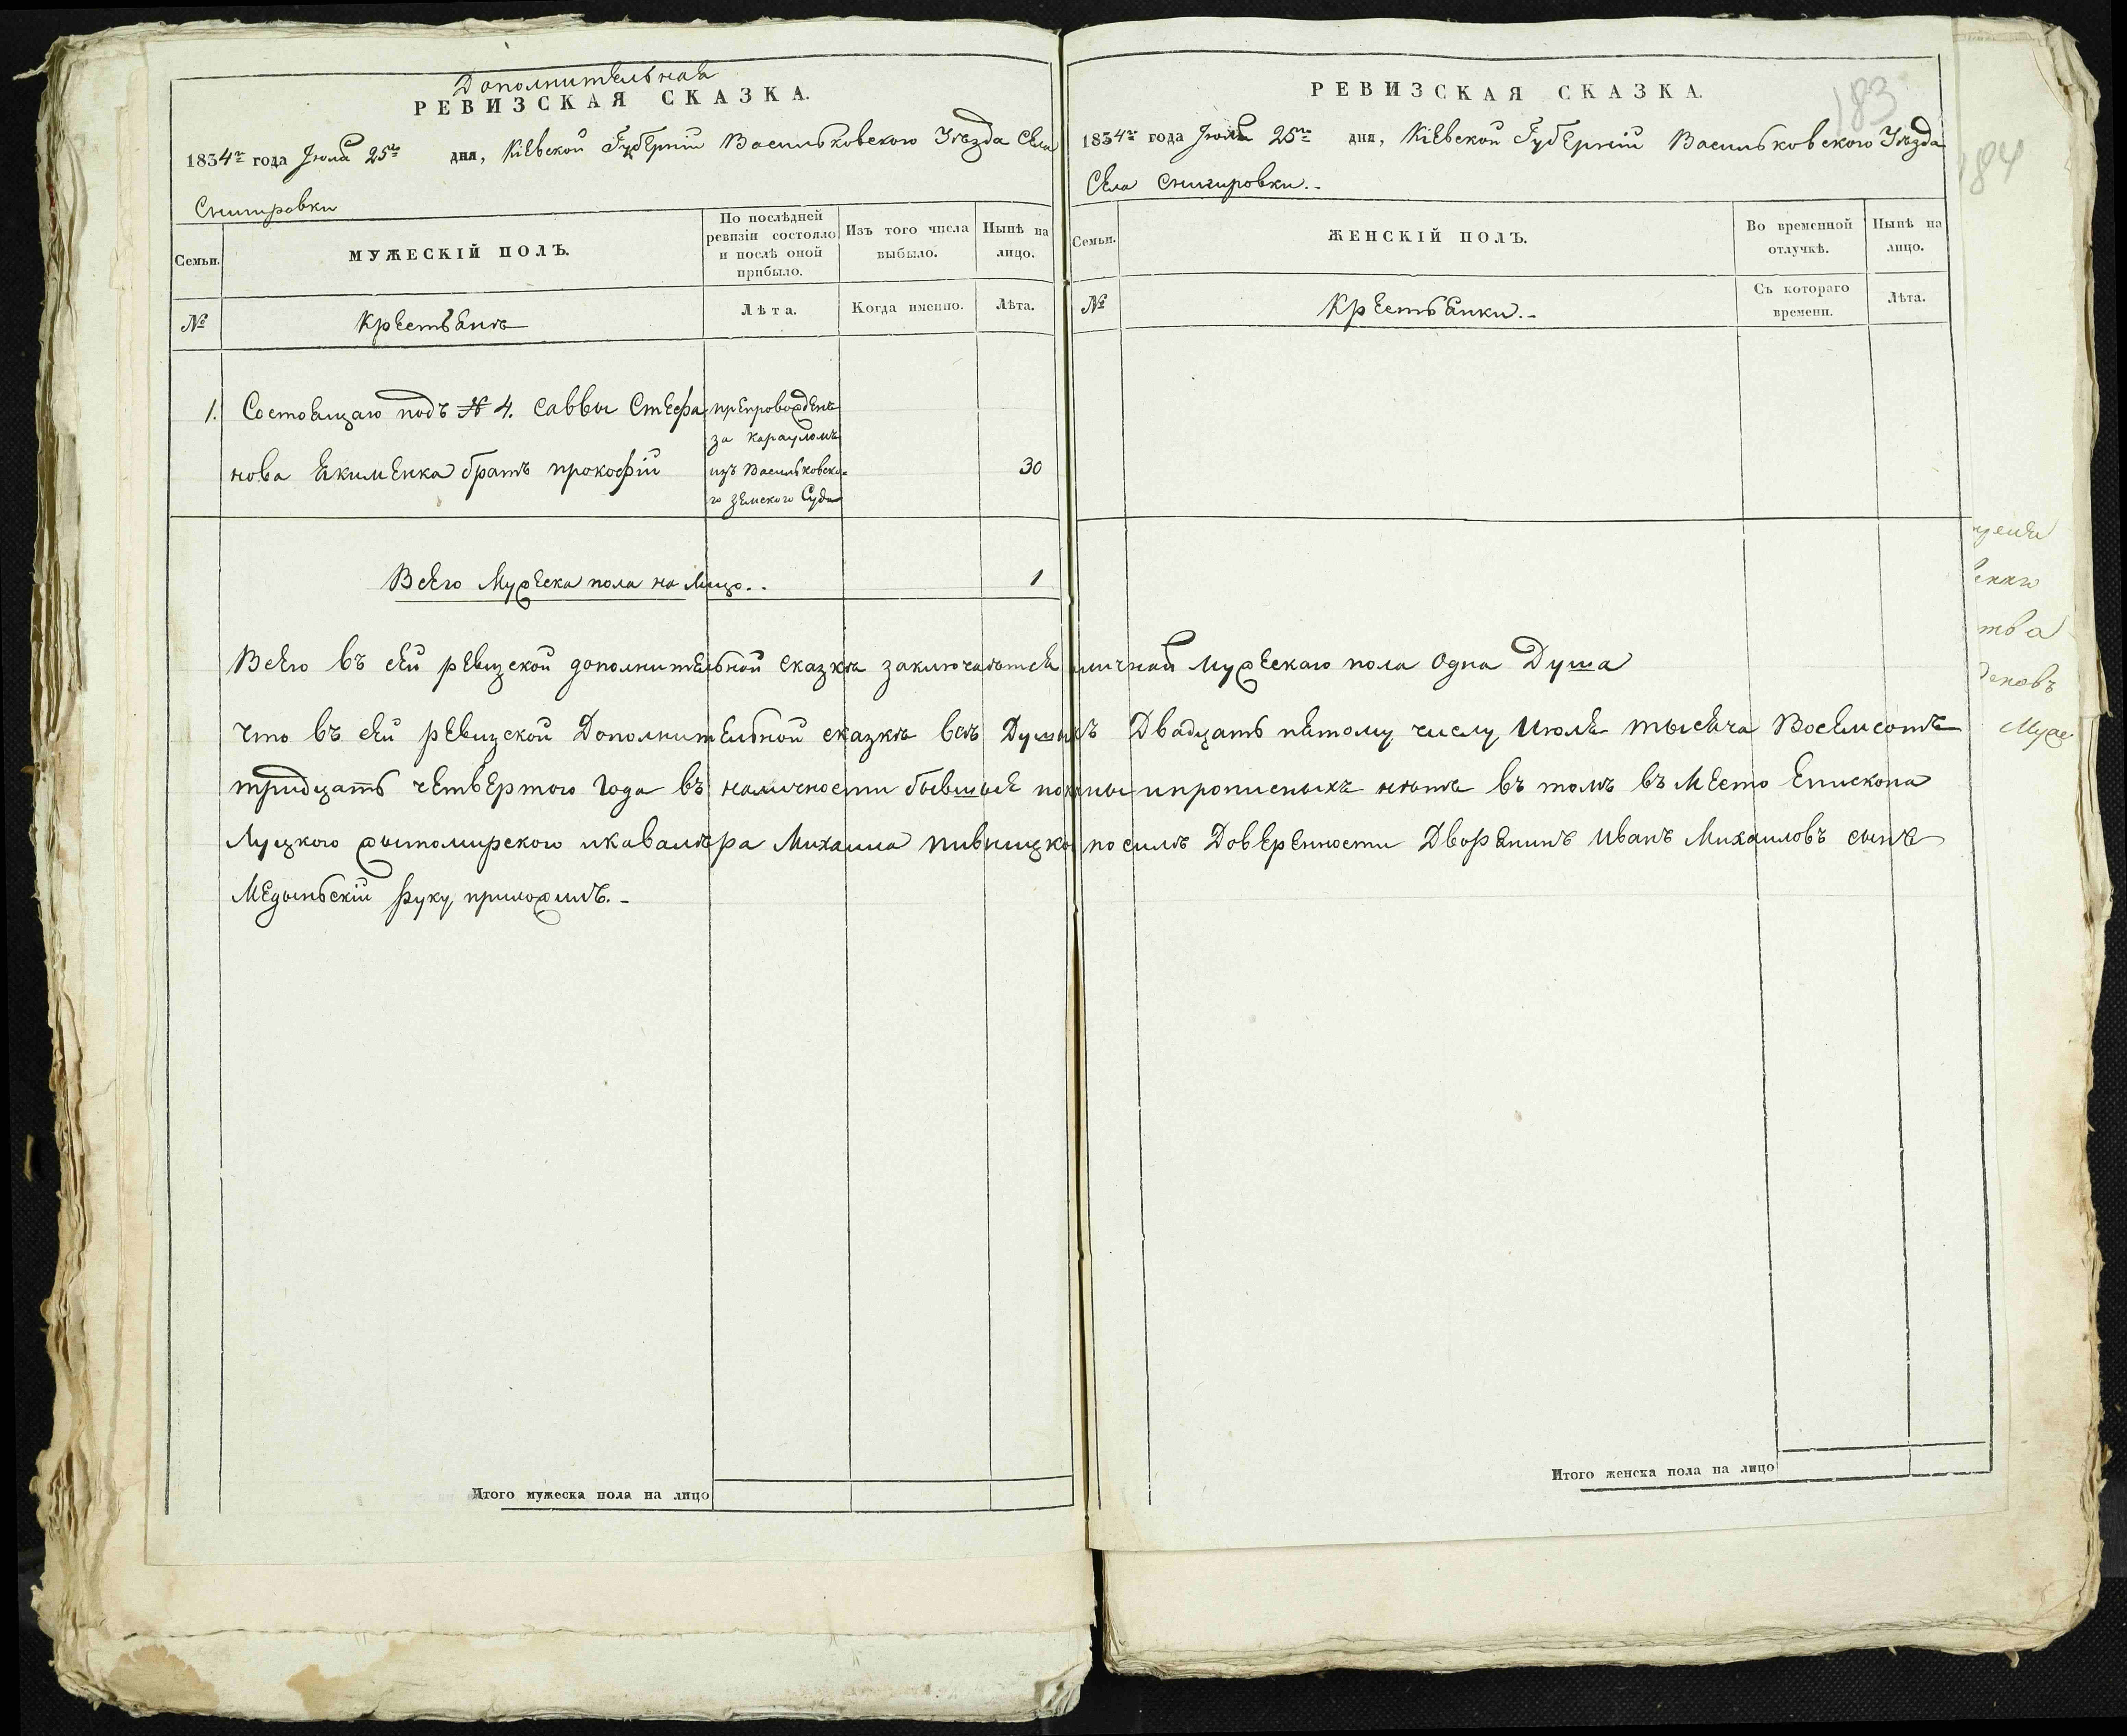 Дополнительная
РЕВИЗСКАЯ СКАЗКА.
1834го года Іюля 25го дня, Кіевской Губерніи Васильковского Уѣзда Села
Снигировки
Семьи.
МУЖЕСКІЙ ПОЛЪ.
По послѣдней ревизіи состояло и послѣ оной прибыло.
Изъ того числа выбыло.
Нынѣ на лицо.
№
Крестьянъ
Лѣта.
Когда именно.
Лѣта.
1. Состоящаго подъ № 4. Саввы Стефа
нова Якименка братъ прокофій
препровожденъ
за карауломъ
изъ Васильковско-
го земского Суда
30
Всего Мужеска пола на Лицо..
1
РЕВИЗСКАЯ СКАЗКА.
183
184
1834го года Іюля 25го дня, Кіевской Губерніи Васильковского Уѣзда
Села Снигировки.-
Семьи.
ЖЕНСКІЙ ПОЛЪ.
Во временной отлучкѣ.
Нынѣ на лицо.
№
Крестьянки.-
Съ котораго времени.
Лѣта.
Всего въ сей ревизской дополнительной сказкѣ заключаѣтся личной мужескаго пола Одна Душа
что въ сей ревизской Дополнительной сказкѣ всѣ Души къ Двадцать пятому числу Июля тысяча Восемсотъ
тридцать четвертого Года въ наличности бывшыя показаны и прописныхъ нѣтъ въ томъ въ Место Епископа
Луцкого житомирского и кавалѣра Михаила пивницко по силѣ Доверенности Дворянинъ Иванъ Михаиловъ сынъ
Медыньскій руку приложилъ.-
Итого мужеска пола на лицо
Итого женска пола на лицо